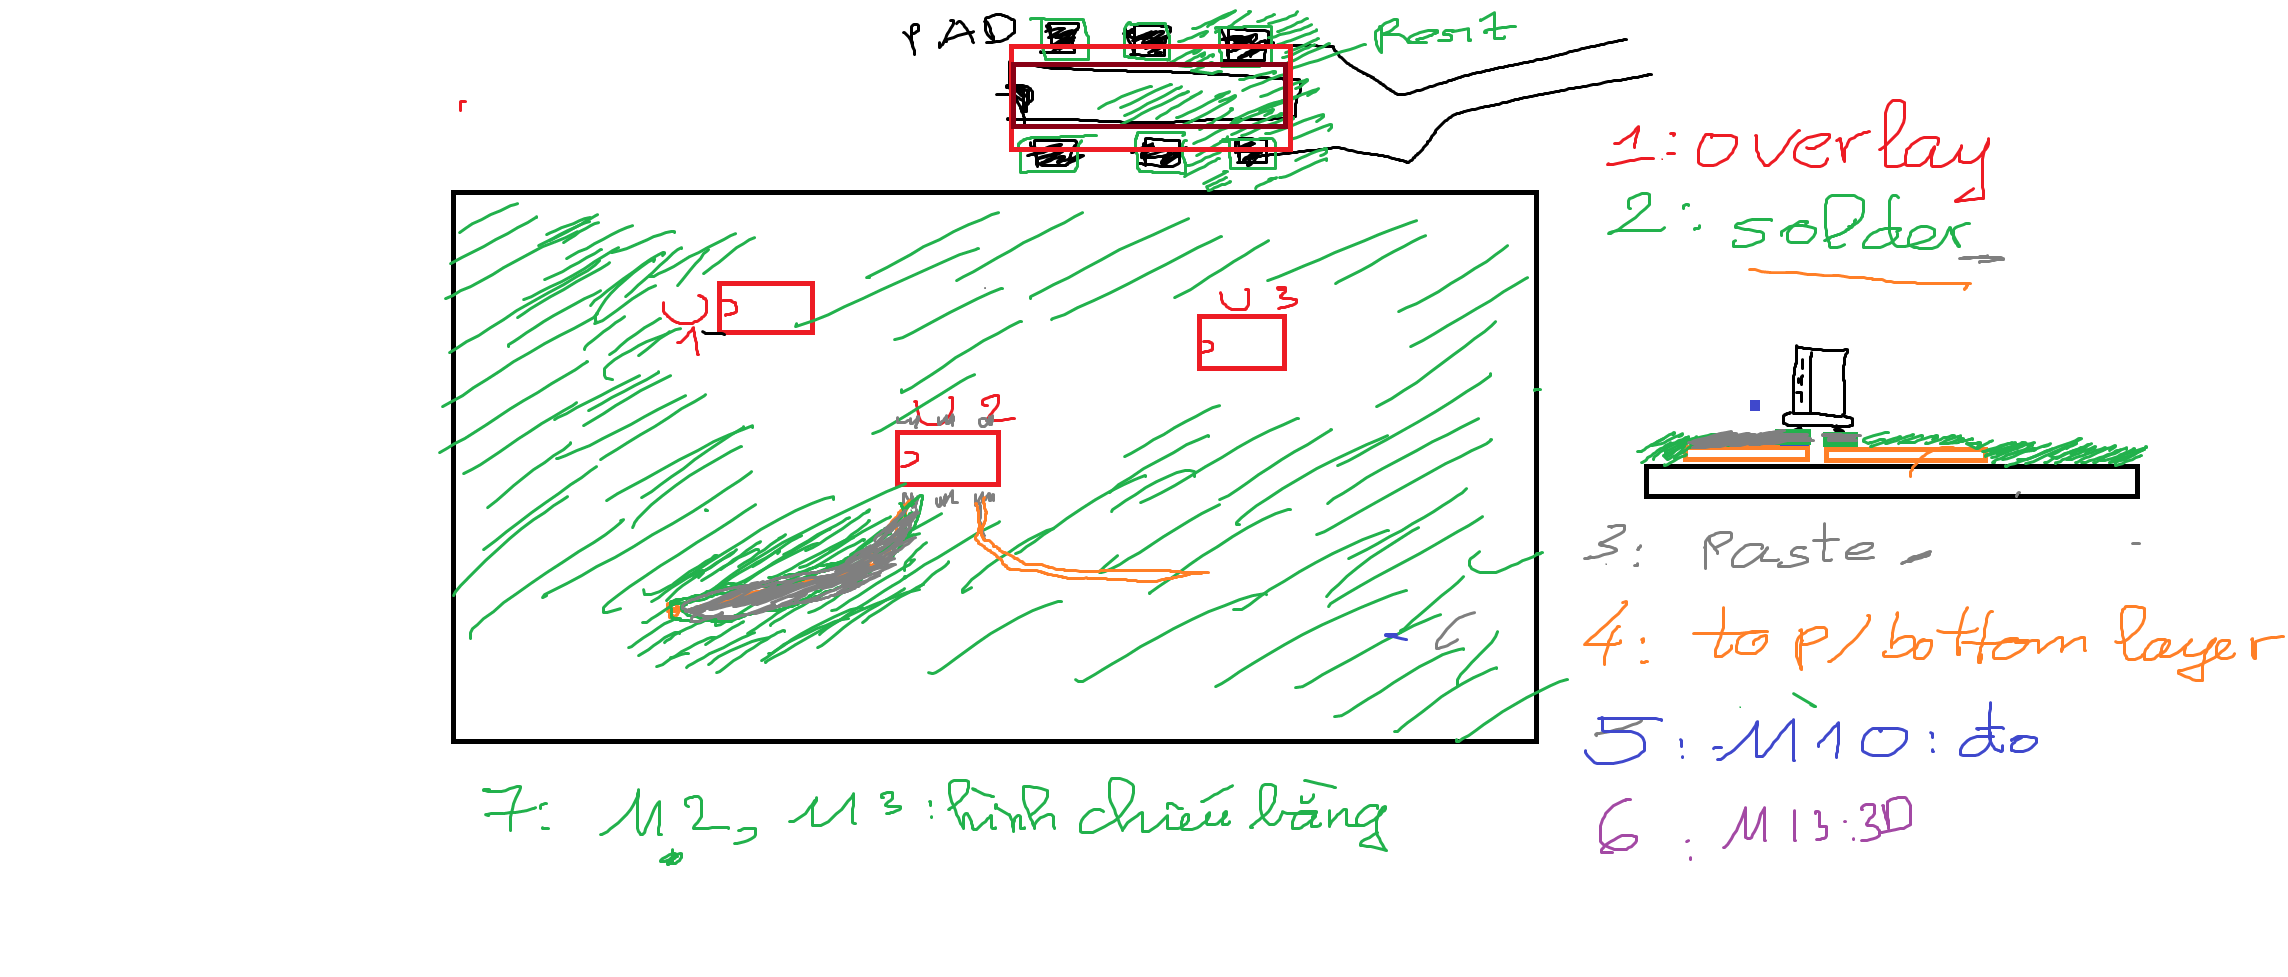 PAD
Resit
1: overlay
2: solder
U1
U3
U2
3: Paste
4: top/bottom layer
5: M10: đo
6: M13:3D
7: M2, M3: hình chiếu bằng